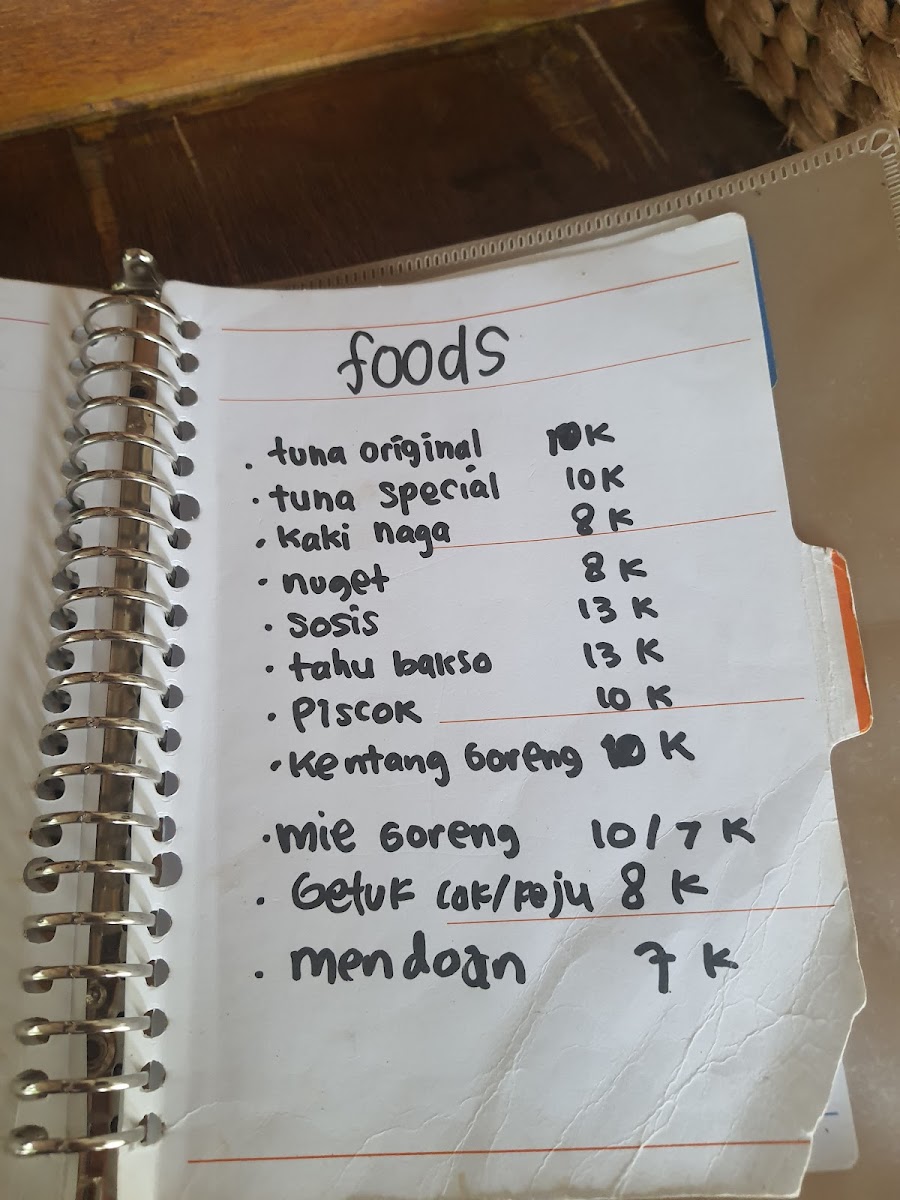 foods
. tuna original 10K
. tuna special 10K
. kaki naga 8K
. nuget 8K
. sosis 13 K
. tahu bakso 13 K
. Piscok 10 K
. Kentang Goreng 10 K
. mie Goreng 10/7 K
. Getuk cok/keju 8 K
. mendoan 7 K